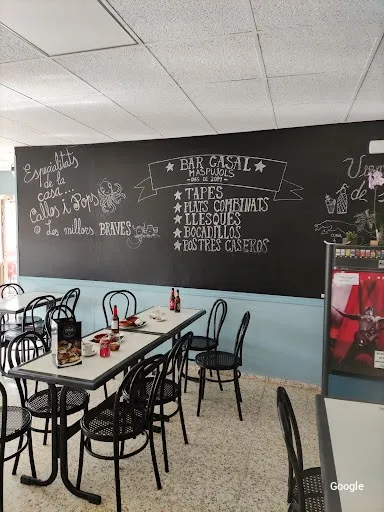 Especialitats
de la
casa...
Callos i Pops
Les millors BRAVES
BAR CASAL
MASPUJOLS
TAPES
PLATS COMBINATS
LLESQUES
BOCADILLOS
POSTRES CASEROS
Google